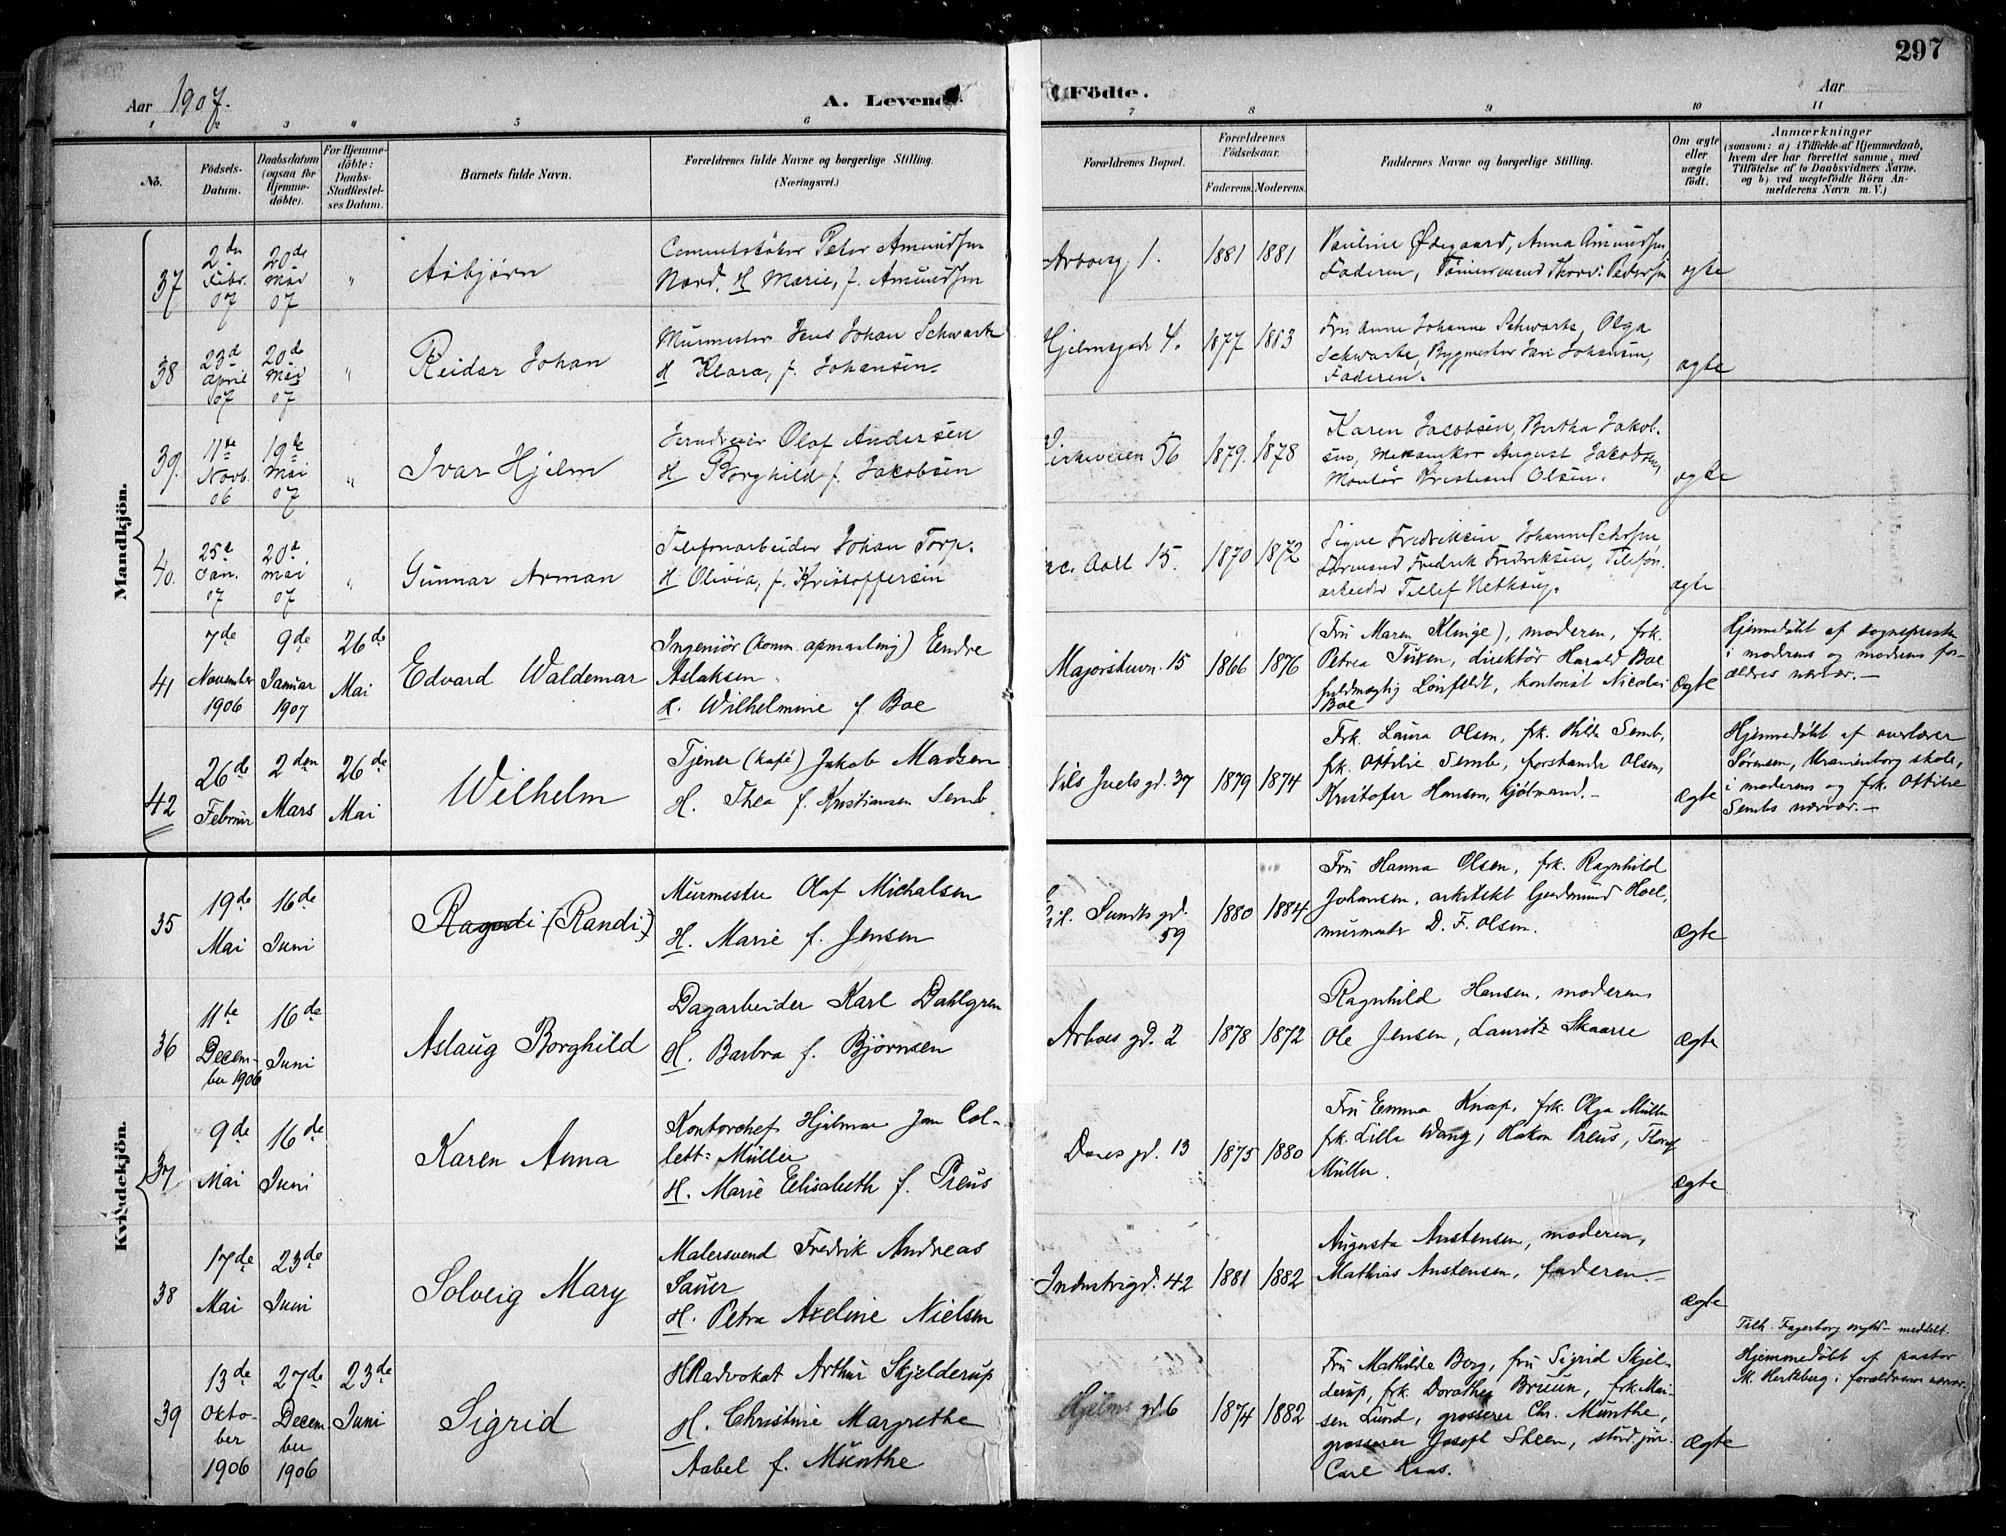 297
Aar 1907.
A. Levende Födte.
Aar
1 2 3 4 5 6 7 8 9 10 11
No.
Födsels-
Datum.
Daabsdatum
(ogsaa for
Hjemme-
döbte).
For Hjemme-
döbte:
Daabs-
Stadfæstel-
ses Datum.
Barnets fulde Navn.
Forældrenes fulde Navne og borgerlige Stilling.
(Næringsvei.)
Forældrenes Bopæl.
Forældrenes
Födselsaar.
Faderens. Moderens.
Faddernes Navne og borgerlige Stilling.
Om ægte
eller
uægte
födt.
Anmærkninger
(saasom: a) i Tilfælde af Hjemmedaab,
hvem der har forrettet samme, med
Tilföielse af to Daabsvidners Navne.
og b) ved uægtefödte Börn An-
melderens Navn m. V.)
Mandkjön.
37
2den
Febr.
07
20de
Mai
07
"
Asbjørn
Cementstøber Peter Amundsen
Nord. H Marie, f. Amundsen
Arboesg. 1.
1881
1881
Pauline Ødegaard, Anna Amundsen
Faderen, Tømmermand Thorv. Pedersen
ægte
38
23d
April
07
20de
Mai
07
"
Reidar Johan
Murmester Jens Johan Schwartz
H Klara, f. Johansen.
Hjelmsgade 4.
1877
1883
Fru Anne Johanne Schwartz, Olga
Schwartz, Bygmester Johansen,
Faderen.
ægte
39.
11te
Novb.
06
19de
Mai
07
"
Ivar Hjelm
Olaf Andersen
H Borghild f. Jakobsen
Kirkeveien 56
1879.
1878
Karen Jacobsen, Bertha Jakob-
sen, Mekaniker August Jakobsen,
Montør Kristian Olsen.
ægte
40.
25de
Jan.
07
20de
Mai
07
"
Gunnar Arman
Telefonarbeider Johan Torp.
H Olivia, f. Kristoffersen
Jac. Aall 15.
1870
1872
Signe Fredriksen, Johanne Pedersen
Formand Fredrik Fredriksen, Telefon-
arbeider Tellef
ægte
41
7de
November
1906
9de
Januar
1907
26de
Mai
Edvard Waldemar
Ingeniör (komm. opmaaling) Eendre
Aslaksen
H. Wilhelmine f. Boe
Majorstuvn. 15
1866
1876
(Fru Maren Klinge), moderen, frk.
Petrea Tuxen, direktör Harald Boe
fuldmægtig Lönfeldt, kontorist Nicolai
Boe
Ægte
Hjemmedöbt af sognepresten
i moderens og moderens for-
ældres nærvær.—
42
26de
Februar
2den
Mars
26de
Mai
Wilhelm
Tjener (kafé) Jakob Madsen
H. Thea f. Kristiansen Semb
Nils Juels gd. 37
1879
1874
Frk. Laura Olsen, frk. Hilda Semb,
frk. Ottilie Semb, forstander Olsen,
Kristofer Hansen, kjölmand.—
Ægte
Hjemmedöbt af overlærer
Sörensen, Uranienborg skole,
i moderens og frk. Ottilie
Sembs nærvær.—
Kvindekjön.
35
19de
Mai
16de
Juni
Ragndi (Randi)
Murmester Olaf Michalsen
H. Marie f. Jensen
Eil. Sundts gd.
59
1880
1884
Fru Hanna Olsen, frk. Ragnhild
Johansen, arkitekt Gudmund Hoel,
murmester D. F. Olsen.
Ægte
36
11te
Decem-
ber 1906
16de
Juni
Aslaug Borghild
Dagarbeider Karl Dahlgren
H. Barbra f. Björnsen
Arboes gd. 2
1878
1872
Ragnhild Hansen, moderen
Ole Jensen, Lauritz Skaarre
Ægte
37
9de
Mai
16de
Juni
Karen Anna
Kontorchef Hjalmar Jan Col-
lett= Müller
H. Marie Elisabeth f. Preus
Daaes gd. 13
1875
1880
Fru Emma Knap, frk. Olga Müller
frk. Lilla Wang, Hakon Preus, Thorolf
Müller.
Ægte
38
17de
Mai
23de
Juni
Solveig Mary
Malersvend Fredrik Andreas
Sauer
H. Petra Axeline Nielsen
Industrigd. 42
1881
1882
Augusta Anstensen, moderen,
Mathias Anstensen, faderen.—
Ægte
39
13de
Okto-
ber
1906
27de
Decem-
ber
1906
23de
Juni
Sigrid
HRadvokat Arthur Skjelderup
H. Christine Margrethe
Aabel f. Munthe
Hjelms gd. 6
1874
1882
Fru Mathilde Borg, fru Sigrid Skjel-
derup, frk. Dorothea Bruun, frk. Mai-
sen Lund, grosserer Chr. Munthe,
grosserer Joseph Steen, stud. jur.
Carl Kaas.
Ægte
Tilh. Fagerborg meddelt.
Hjemmedöbt af pastor
M. Hertzberg i forældrenes nærvær.